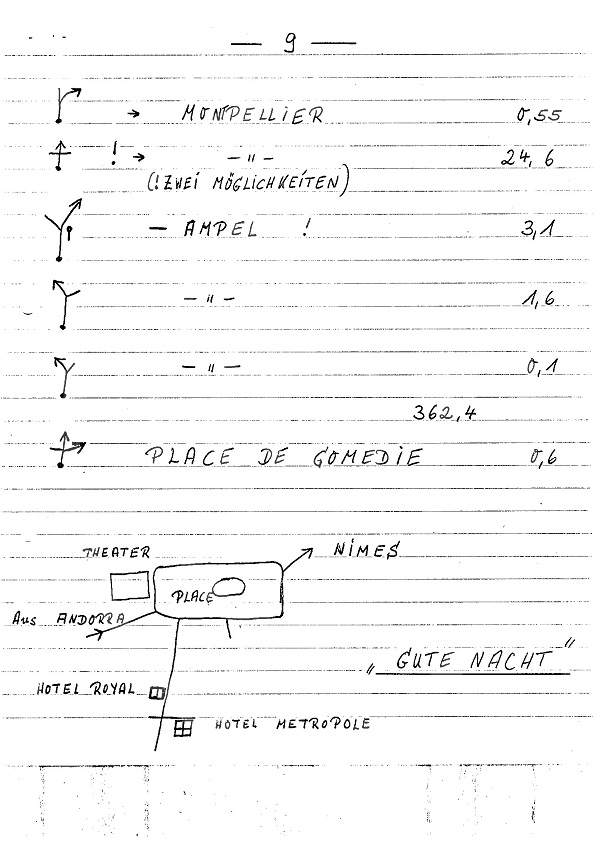 — 9 —
→ MONTPELLIER 0,55
! → — " — 24,6
(! ZWEI MÖGLICHKEITEN)
— AMPEL ! 3,1
— " — 1,6
— " — 0,1
362,4
PLACE DE COMEDIE 0,6
THEATER
NIMES
PLACE
Aus ANDORRA
„GUTE NACHT"
HOTEL ROYAL
HOTEL METROPOLE